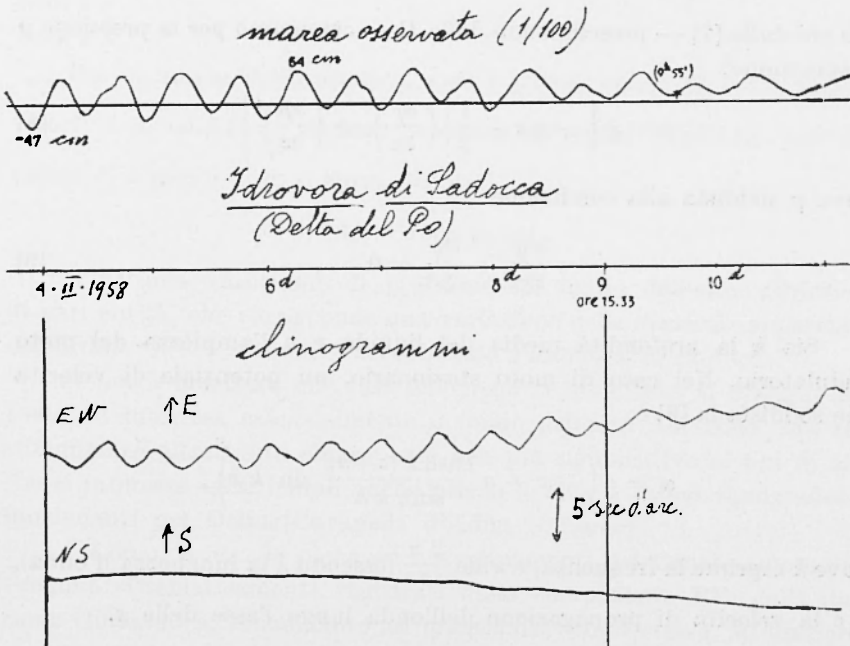 marea osservata (1/100)
64 cm
(0h 55')
-47 cm
Idrovora di Sadocca
(Delta del Po)
4 · II · 1958
6d
8d
9
10d
ore 15.33
clinogrammi
EW
↑E
5 sec d'arc.
↑S
NS